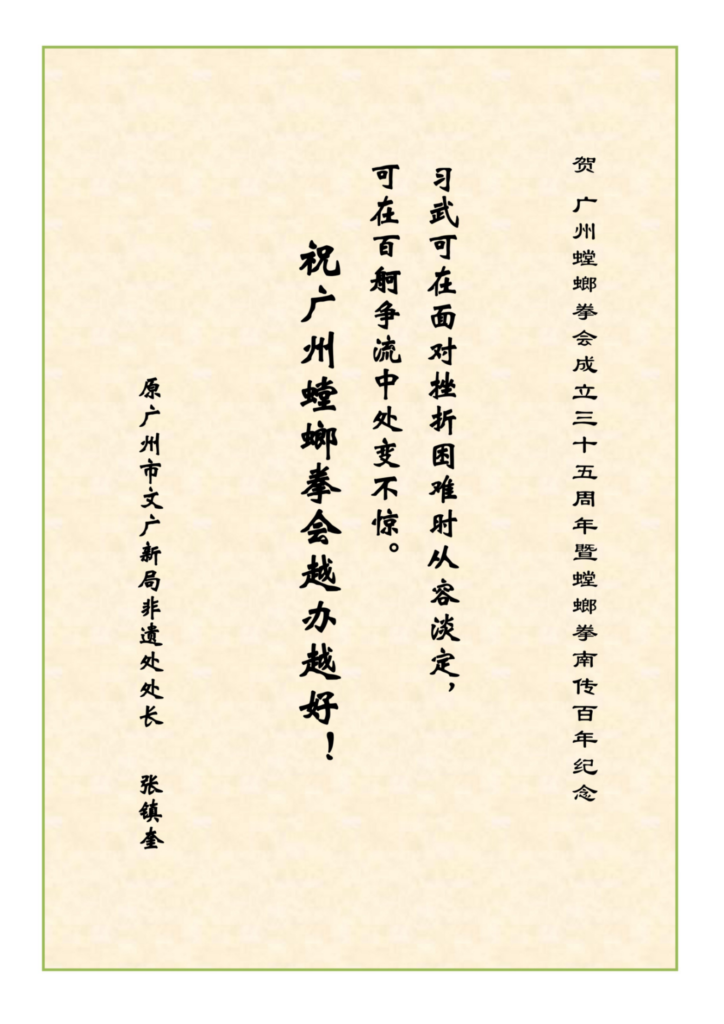 贺 广州螳螂拳会成立三十五周年暨螳螂拳南传百年纪念
习武可在面对挫折困难时从容淡定，
可在百舸争流中处变不惊。
祝广州螳螂拳会越办越好！
原广州市文广新局非遗处处长 张镇奎